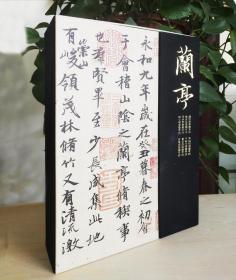 蘭亭
永和九年歲在癸丑暮春之初會
于會稽山陰之蘭亭脩稧事
也羣賢畢至少長咸集此地
有崇山峻領茂林脩竹又有清流激